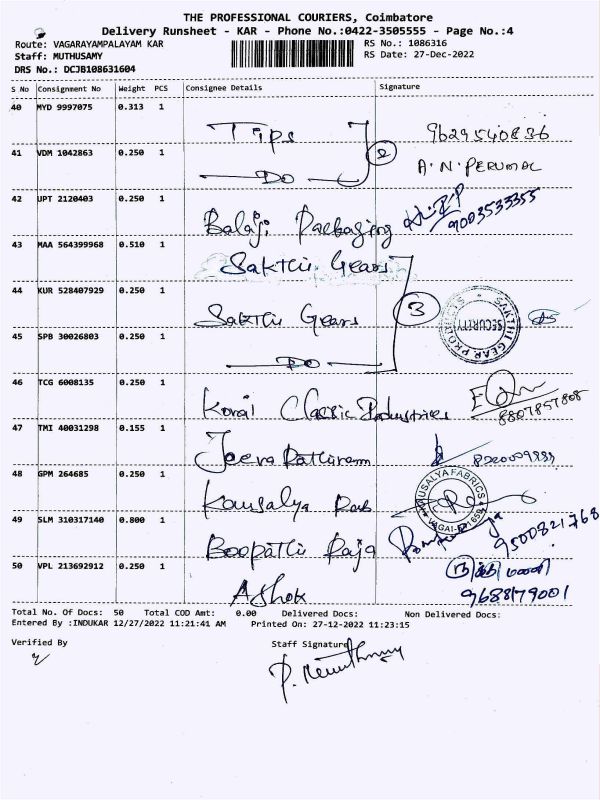 THE PROFESSIONAL COURIERS, Coimbatore
Delivery Runsheet - KAR - Phone No.:0422-3505555 - Page No.:4
Route: VAGARAYAMPALAYAM KAR
RS No.: 1086316
Staff: MUTHUSAMY
RS Date: 27-Dec-2022
DRS No.: DCJB108631604
S No Consignment No Weight PCS Consignee Details Signature
40 MYD 9997075 0.313 1
Tips 9629540836
41 VDM 1042863 0.250 1
2
Do A.N. PERUMAL
42 UPT 2120403 0.250 1
Balaji Packaging 9003533355
43 MAA 564399968 0.510 1
Sakthi Gears
44 KUR 528407929 0.250 1
Sakthi Gears 3
SAKTHI GEAR PRODUCTS
SECURITY
45 SPB 30026803 0.250 1
Do
46 TCG 6008135 0.250 1
Kovai Classic Industries 8807857808
47 TMI 40031298 0.155 1
Jeeva Rathinam
48 GPM 264685 0.250 1
Kausalya Fab
KAUSALYA FABRICS
49 SLM 310317140 0.800 1
Boopathi Raja 9500821768
50 VPL 213692912 0.250 1
Ashok 9688179001
Total No. Of Docs: 50 Total COD Amt: 0.00 Delivered Docs: Non Delivered Docs:
Entered By :INDUKAR 12/27/2022 11:21:41 AM Printed On: 27-12-2022 11:23:15
Verified By Staff Signature
P. Muthusamy